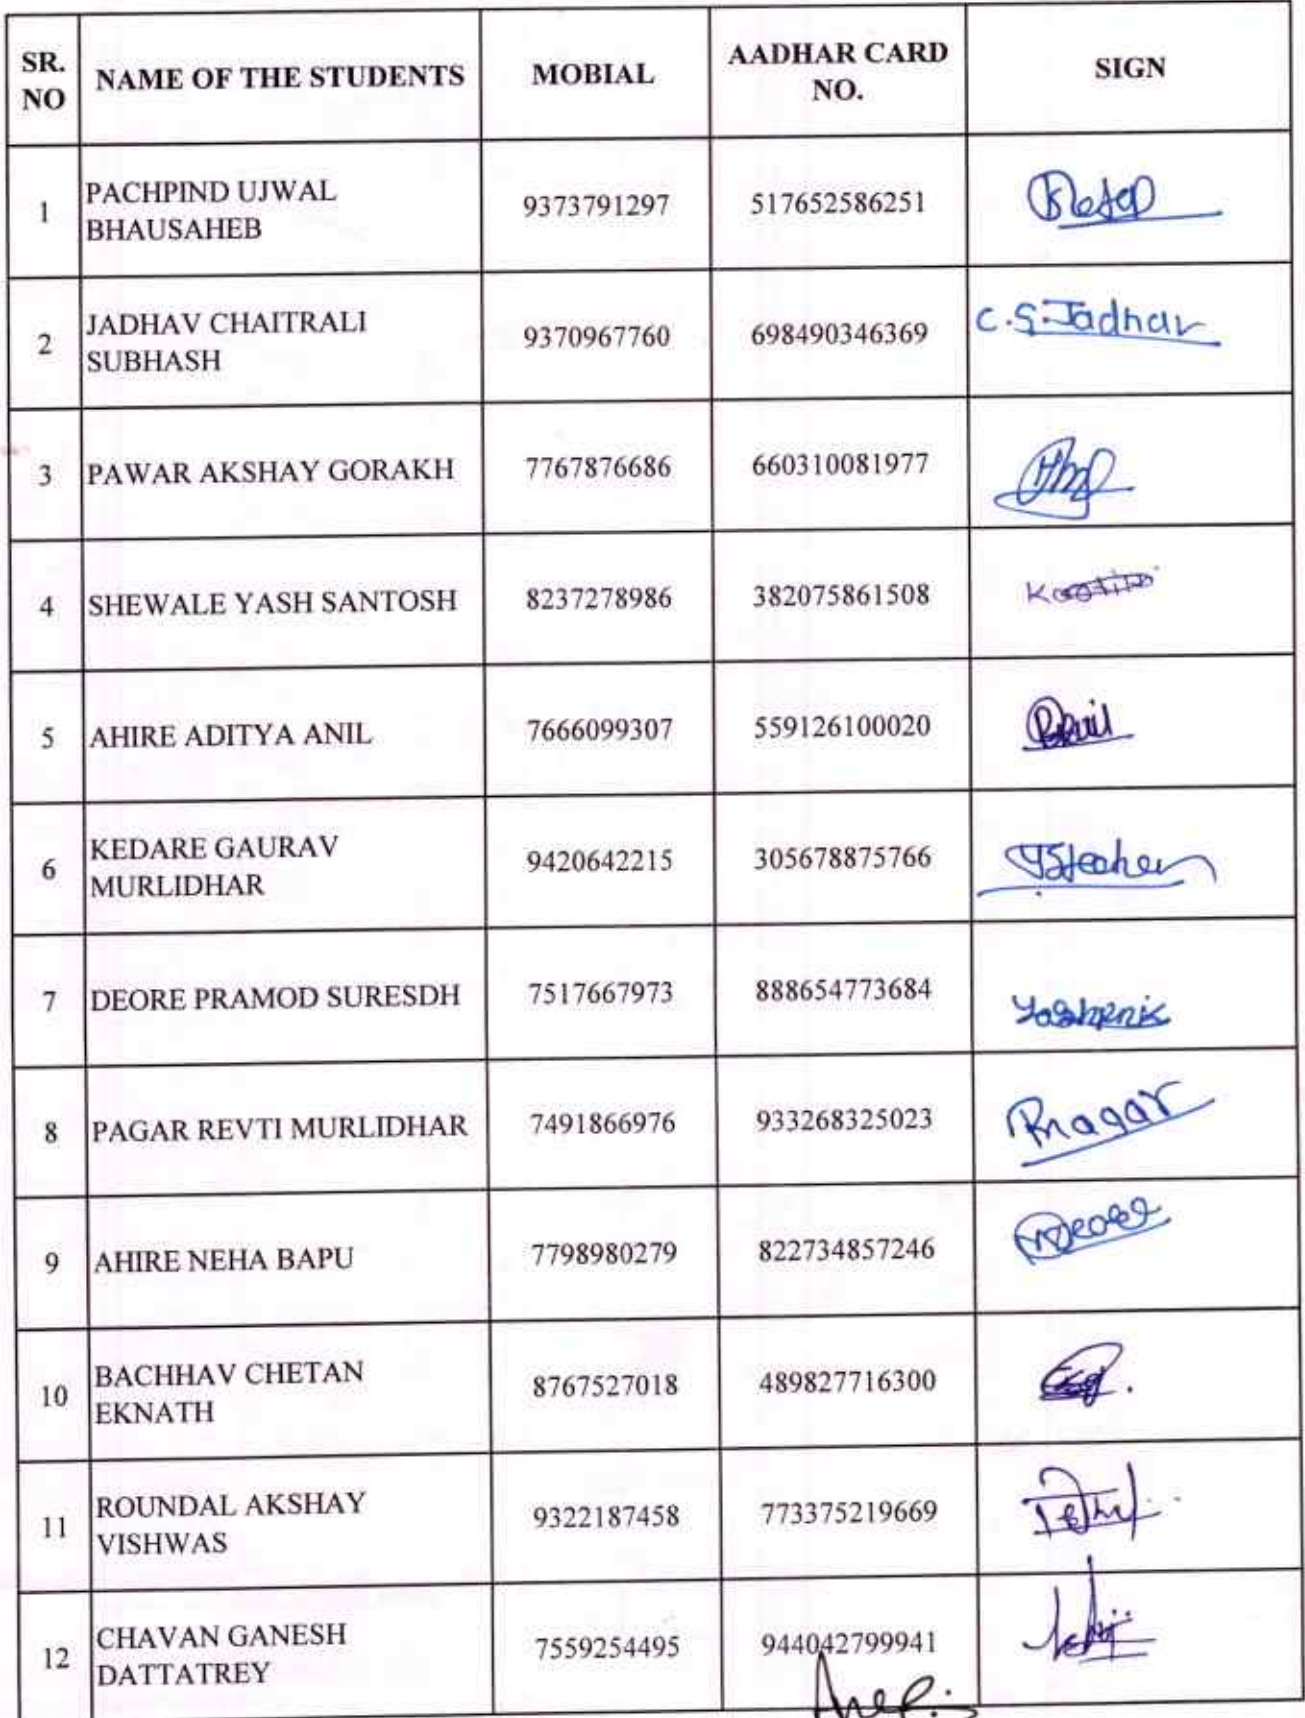 SR. NO NAME OF THE STUDENTS MOBIAL AADHAR CARD NO. SIGN
1 PACHPIND UJWAL BHAUSAHEB 9373791297 517652586251
2 JADHAV CHAITRALI SUBHASH 9370967760 698490346369 C.S.Jadhav
3 PAWAR AKSHAY GORAKH 7767876686 660310081977
4 SHEWALE YASH SANTOSH 8237278986 382075861508
5 AHIRE ADITYA ANIL 7666099307 559126100020
6 KEDARE GAURAV MURLIDHAR 9420642215 305678875766
7 DEORE PRAMOD SURESDH 7517667973 888654773684
8 PAGAR REVTI MURLIDHAR 7491866976 933268325023
9 AHIRE NEHA BAPU 7798980279 822734857246
10 BACHHAV CHETAN EKNATH 8767527018 489827716300
11 ROUNDAL AKSHAY VISHWAS 9322187458 773375219669
12 CHAVAN GANESH DATTATREY 7559254495 944042799941